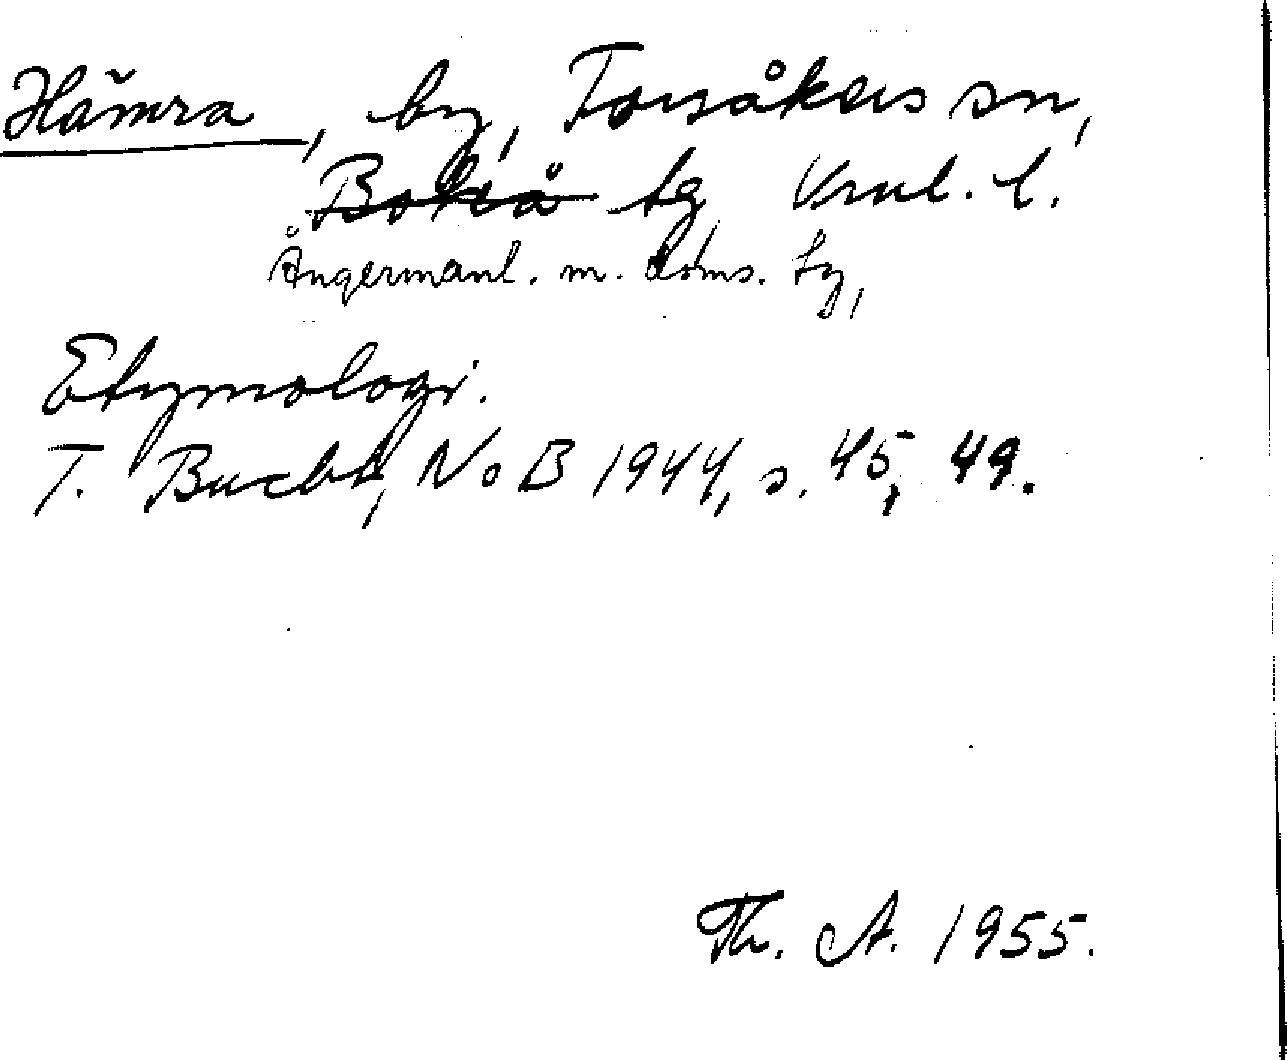 Hämra, by, Torsåkers sn,
Boteå tg, Vrnl. l.
Ångermanl. m. doms. tg,
Etymologi.
T. Bucht, NoB 1944, s. 45, 49.
Th. A. 1955.